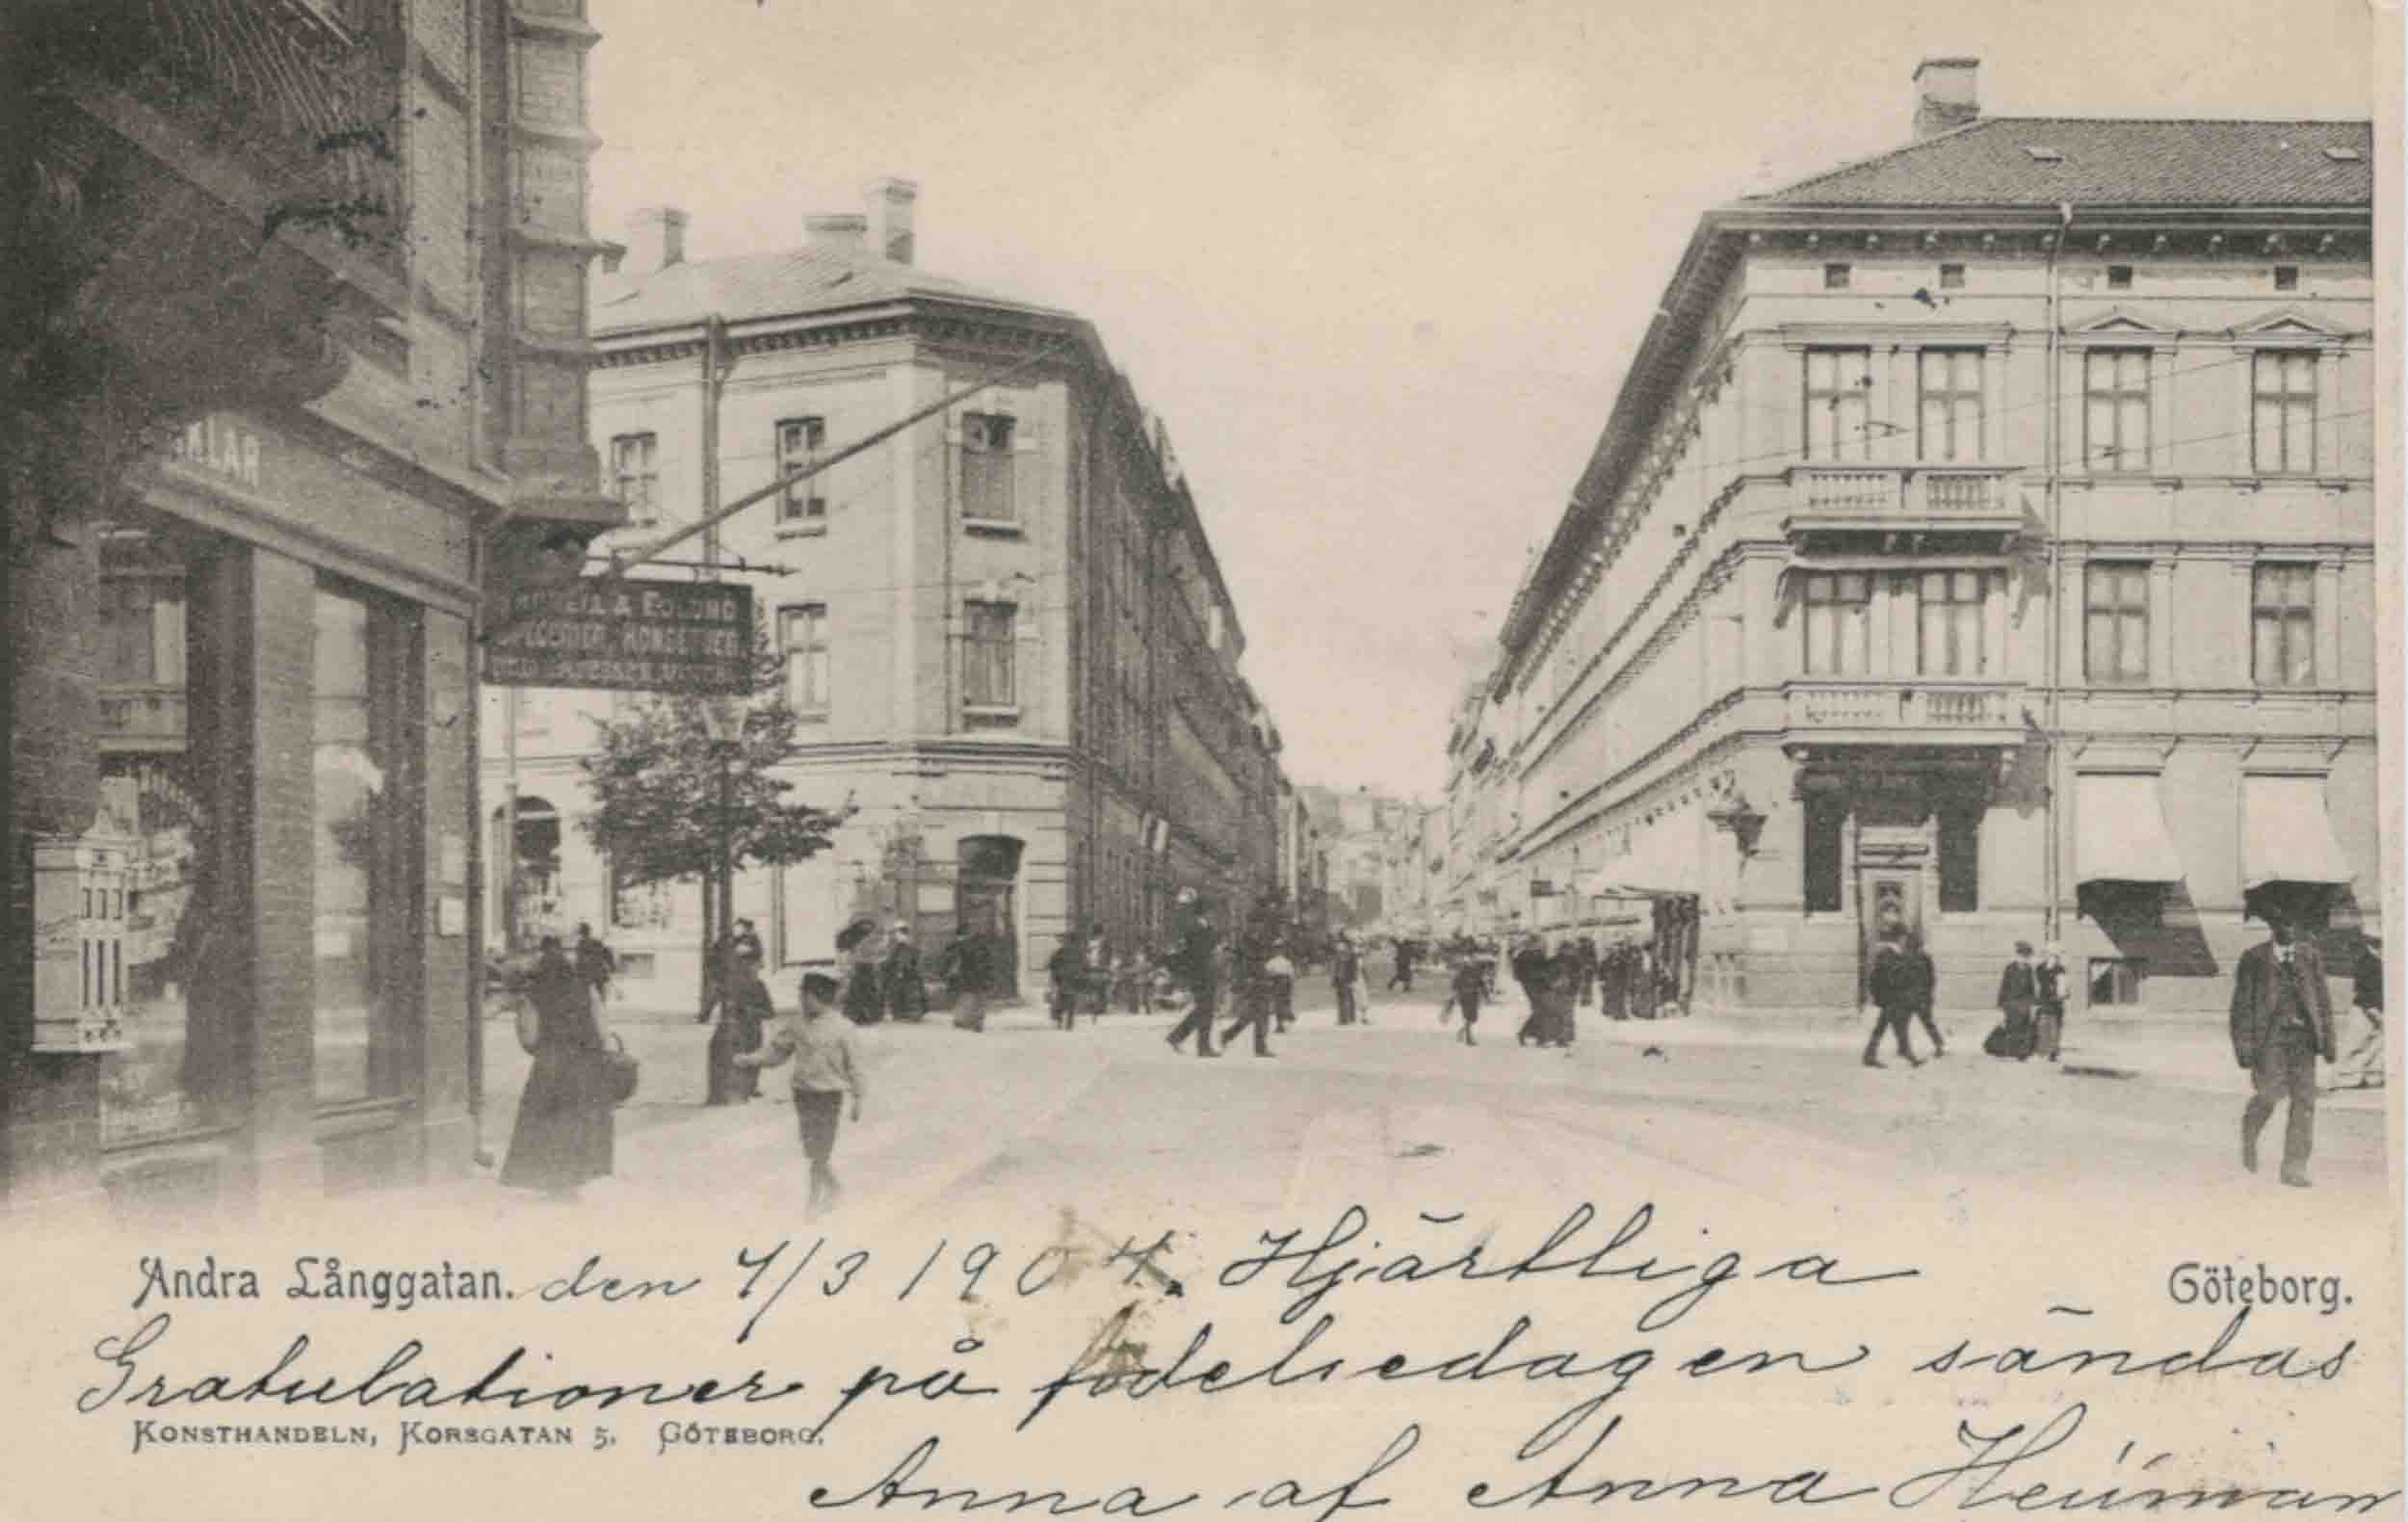 & EDLUND
Andra Långgatan. den 7/3 1904. Hjärtliga
Göteborg.
Gratulationer på födelsedagen sändas
KONSTHANDELN, KORSGATAN 5, GÖTEBORG.
Anna af Anna Heüman